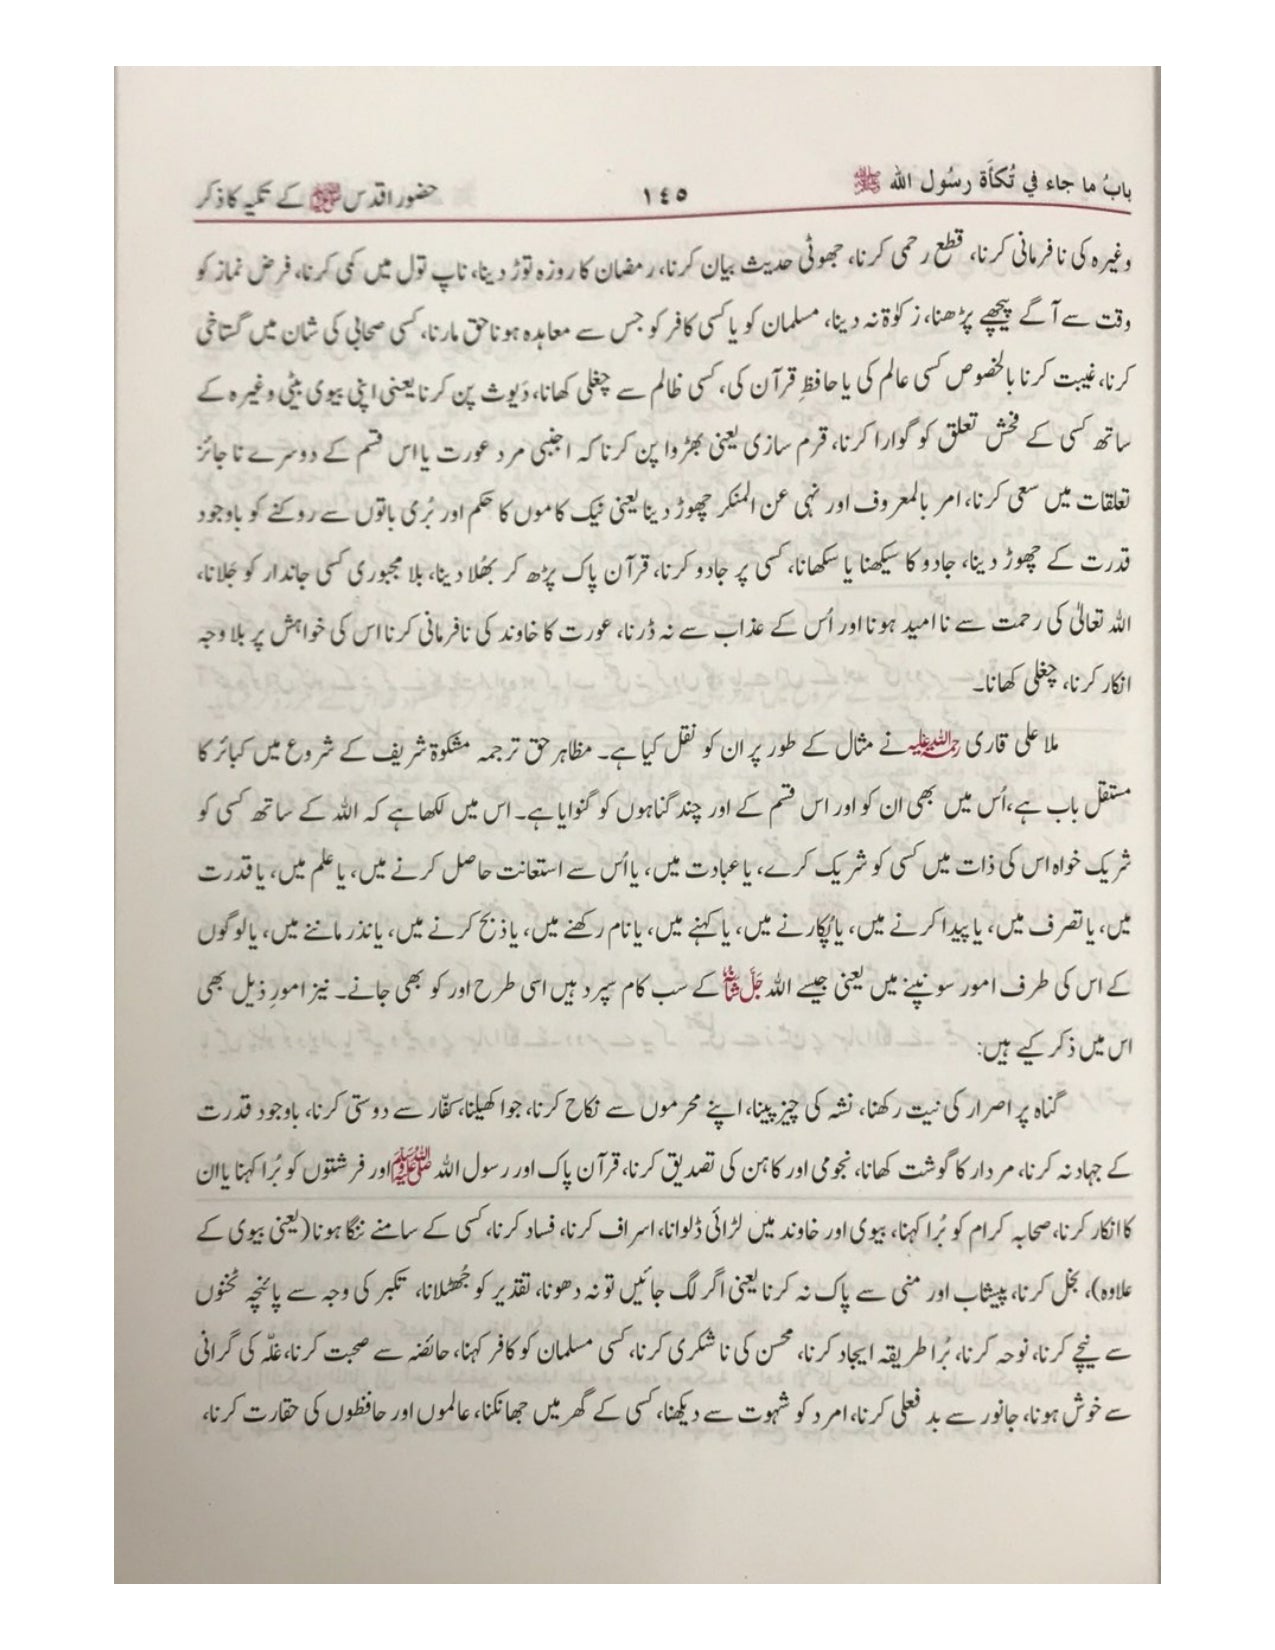 بابُ ما جاء في تُكأَة رسُول الله ﷺ ١٤٥ حضور اقدس ﷺ کے تکیہ کا ذکر
وغیرہ کی نافرمانی کرنا، قطع رحمی کرنا، جھوٹی حدیث بیان کرنا، رمضان کا روزہ توڑ دینا، ناپ تول میں کمی کرنا، فرض نماز کو
وقت سے آگے پیچھے پڑھنا، زکوٰۃ نہ دینا، مسلمان کو یا کسی کافر کو جس سے معاہدہ ہو ناحق مارنا، کسی صحابی کی شان میں گستاخی
کرنا، غیبت کرنا بالخصوص کسی عالم کی یا حافظِ قرآن کی، کسی ظالم سے چغلی کھانا، دَیوث پن کرنا یعنی اپنی بیوی بیٹی وغیرہ کے
ساتھ کسی کے فحش تعلق کو گوارا کرنا، قرم سازی یعنی بھڑوا پن کرنا کہ اجنبی مرد عورت یا اس قسم کے دوسرے ناجائز
تعلقات میں سعی کرنا، امر بالمعروف اور نہی عن المنکر چھوڑ دینا یعنی نیک کاموں کا حکم اور بُری باتوں سے روکنے کو باوجود
قدرت کے چھوڑ دینا، جادو کا سیکھنا یا سکھانا، کسی پر جادو کرنا، قرآن پاک پڑھ کر بھُلا دینا، بلا مجبوری کسی جاندار کو جَلانا،
اللہ تعالیٰ کی رحمت سے نا امید ہونا اور اُس کے عذاب سے نہ ڈرنا، عورت کا خاوند کی نافرمانی کرنا اس کی خواہش پر بلا وجہ
انکار کرنا، چغلی کھانا۔
ملا علی قاری رحمۃ اللہ علیہ نے مثال کے طور پر ان کو نقل کیا ہے۔ مظاہر حق ترجمہ مشکوٰۃ شریف کے شروع میں کبائر کا
مستقل باب ہے، اُس میں بھی ان کو اور اس قسم کے اور چند گناہوں کو گنوایا ہے۔ اس میں لکھا ہے کہ اللہ کے ساتھ کسی کو
شریک خواہ اس کی ذات میں کسی کو شریک کرے، یا عبادت میں، یا اُس سے استعانت حاصل کرنے میں، یا علم میں، یا قدرت
میں، یا تصرف میں، یا پیدا کرنے میں، یا پُکارنے میں، یا کہنے میں، یا نام رکھنے میں، یا ذبح کرنے میں، یا نذر ماننے میں، یا لوگوں
کے اس کی طرف امور سونپنے میں یعنی جیسے اللہ جَلَّ شَانُہٗ کے سب کام سپرد ہیں اسی طرح اور کو بھی جانے۔ نیز امورِ ذیل بھی
اس میں ذکر کیے ہیں:
گناہ پر اصرار کی نیت رکھنا، نشہ کی چیز پینا، اپنے محرموں سے نکاح کرنا، جوا کھیلنا، کفّار سے دوستی کرنا، باوجود قدرت
کے جہاد نہ کرنا، مردار کا گوشت کھانا، نجومی اور کاہن کی تصدیق کرنا، قرآن پاک اور رسول اللہ ﷺ اور فرشتوں کو بُرا کہنا یا ان
کا انکار کرنا، صحابہ کرام کو بُرا کہنا، بیوی اور خاوند میں لڑائی ڈلوانا، اسراف کرنا، فساد کرنا، کسی کے سامنے ننگا ہونا (یعنی بیوی کے
علاوہ)، بخل کرنا، پیشاب اور منی سے پاک نہ کرنا یعنی اگر لگ جائیں تو نہ دھونا، تقدیر کو جُھٹلانا، تکبر کی وجہ سے پائنچہ ٹخنوں
سے نیچے کرنا، نوحہ کرنا، بُرا طریقہ ایجاد کرنا، محسن کی ناشکری کرنا، کسی مسلمان کو کافر کہنا، حائضہ سے صحبت کرنا، غلّہ کی گرانی
سے خوش ہونا، جانور سے بد فعلی کرنا، امرد کو شہوت سے دیکھنا، کسی کے گھر میں جھانکنا، عالموں اور حافظوں کی حقارت کرنا،